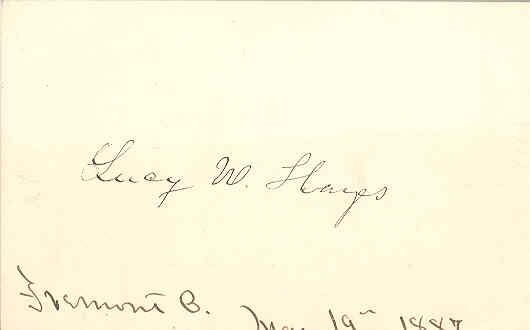 Lucy W. Hayes
Fremont O. May 19th 188